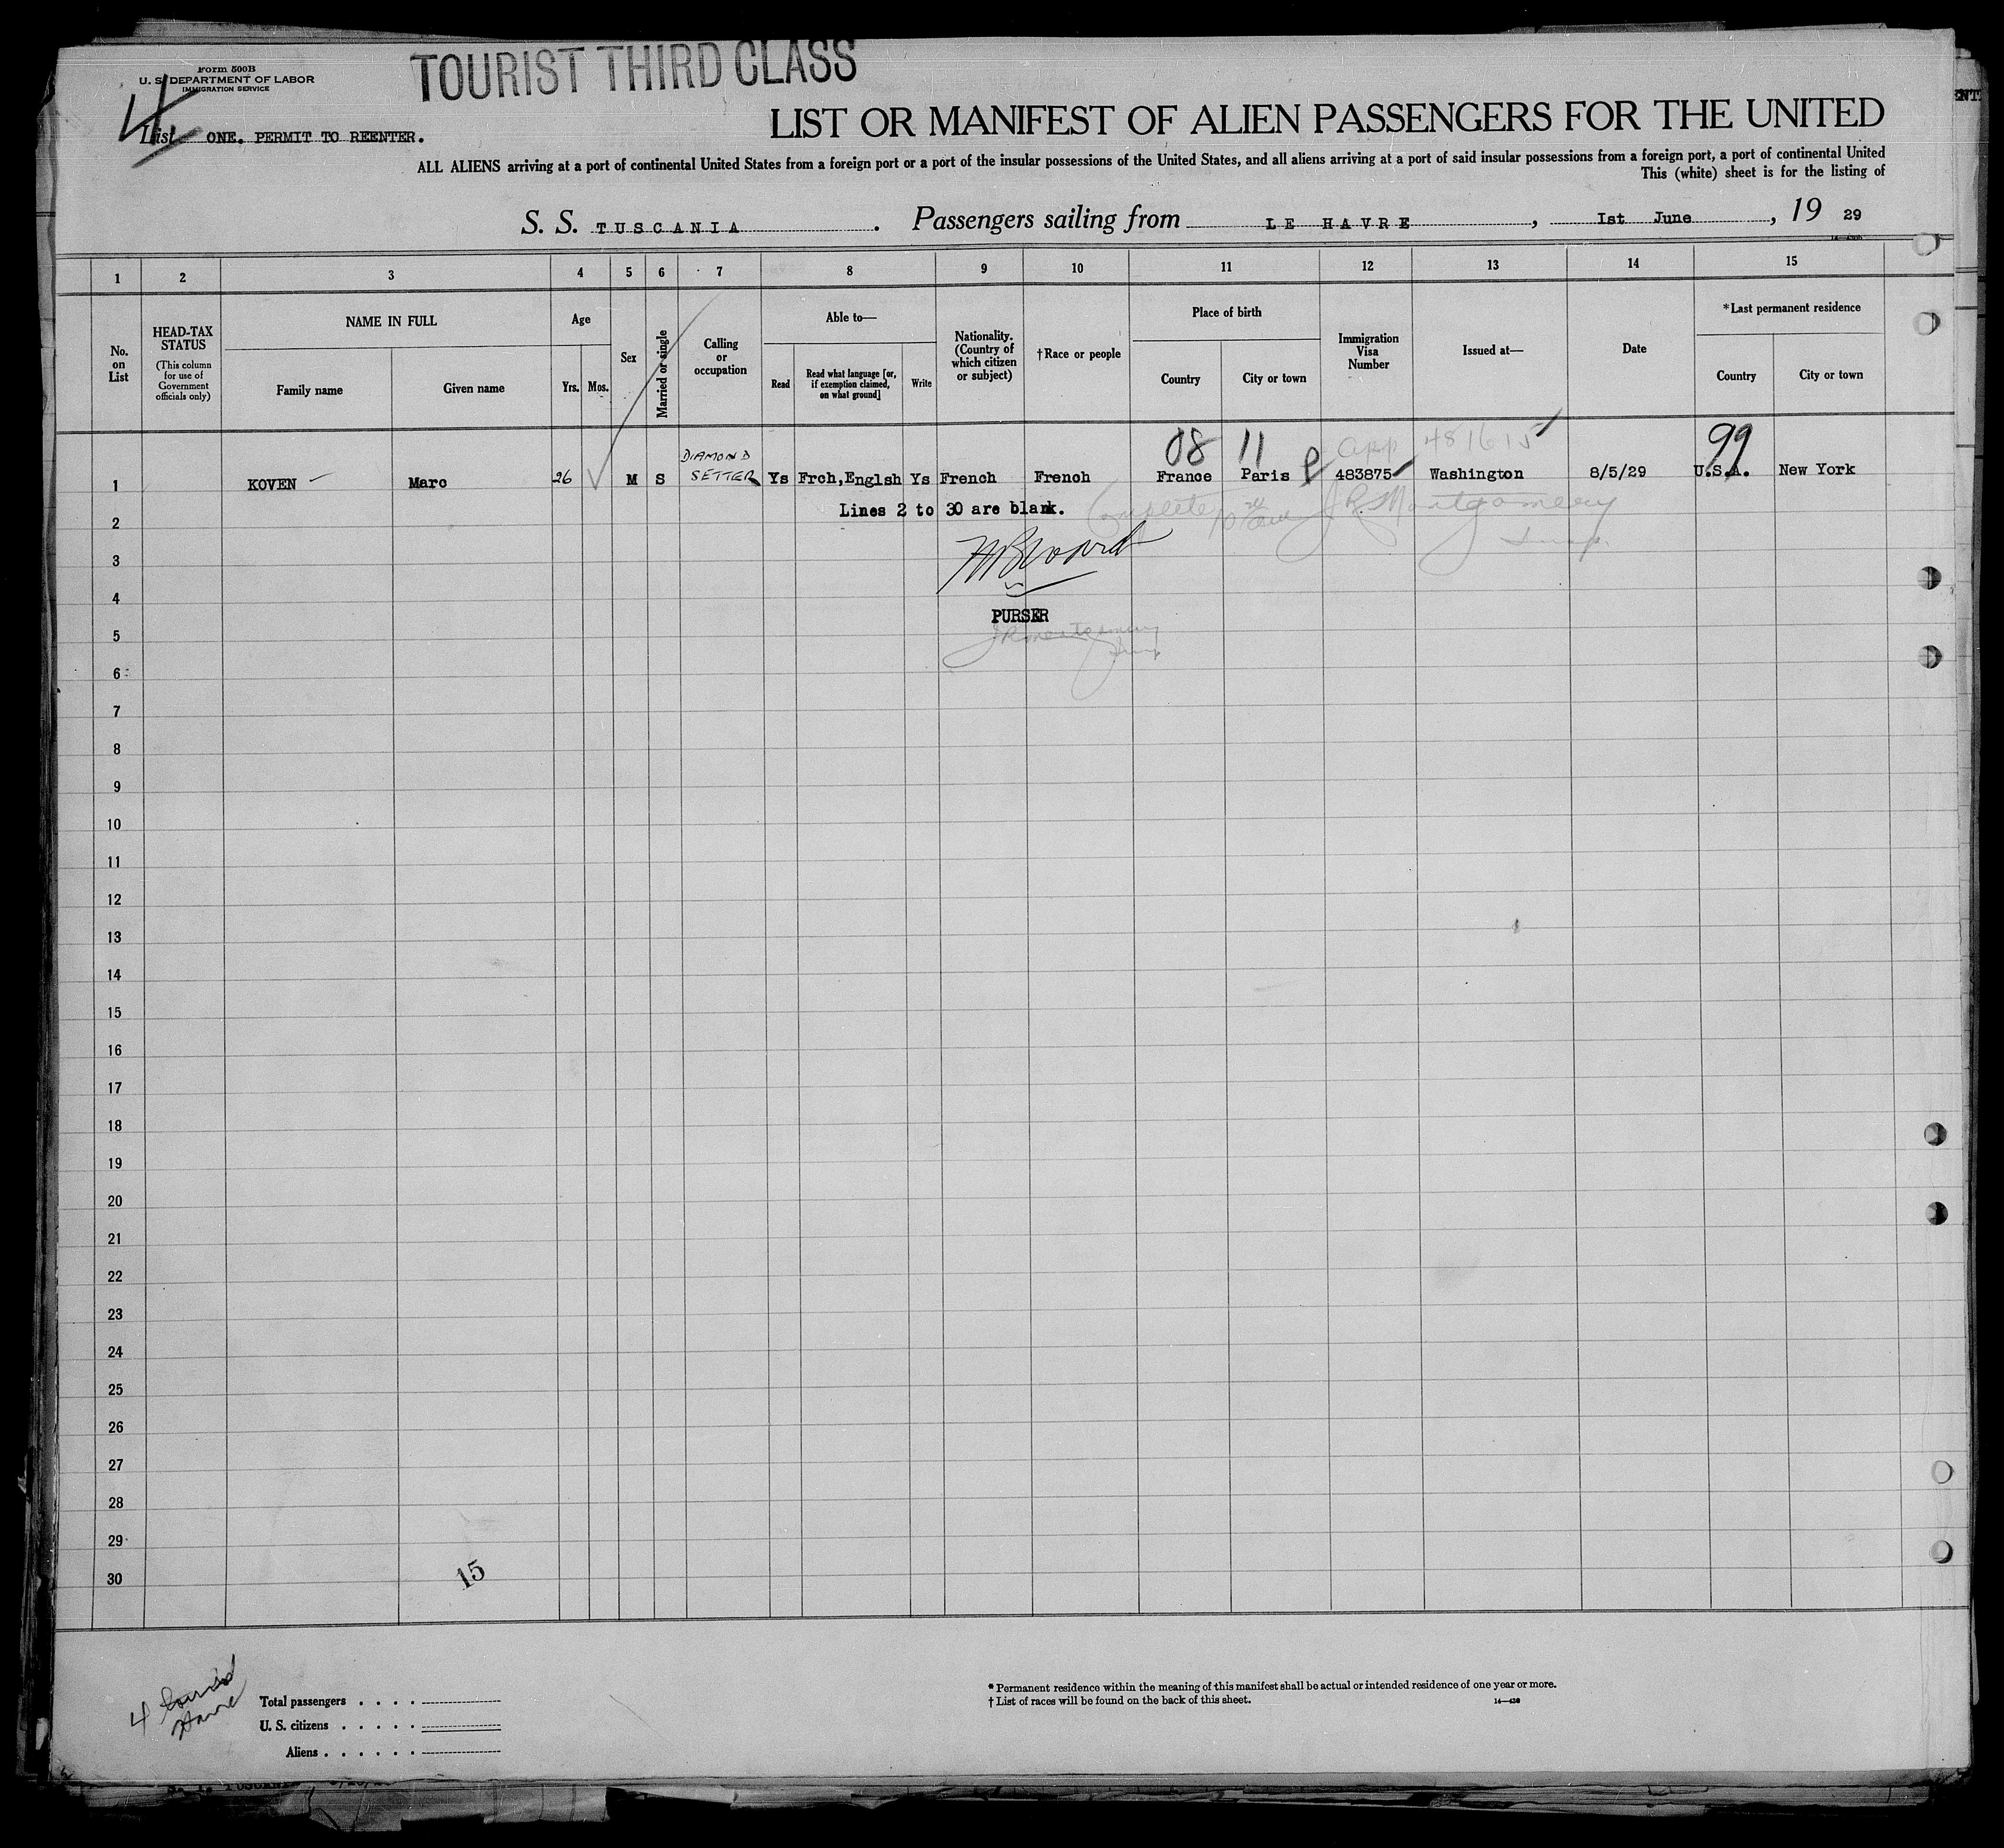 TOURIST THIRD CLASS
Form 500B
U. S. DEPARTMENT OF LABOR
IMMIGRATION SERVICE
4
List ONE. PERMIT TO REENTER.
LIST OR MANIFEST OF ALIEN PASSENGERS FOR THE UNITED
ALL ALIENS arriving at a port of continental United States from a foreign port or a port of the insular possessions of the United States, and all aliens arriving at a port of said insular possessions from a foreign port, a port of continental United
This (white) sheet is for the listing of
S. S. TUSCANIA. Passengers sailing from LE HAVRE, Ist June, 19 29
1 2 3 4 5 6 7 8 9 10 11 12 13 14 15
No. on List
HEAD-TAX STATUS
(This column for use of Government officials only)
NAME IN FULL
Family name Given name
Age
Yrs. Mos.
Sex
Married or single
Calling or occupation
Able to—
Read
Read what language [or, if exemption claimed, on what ground]
Write
Nationality. (Country of which citizen or subject)
†Race or people
Place of birth
Country City or town
Immigration Visa Number
Issued at—
Date
*Last permanent residence
Country City or town
08 11 app 481615 99
1 KOVEN Marc 26 M S DIAMOND SETTER Ys Frch,Englsh Ys French French France Paris 483875 Washington 8/5/29 U.S.A. New York
Lines 2 to 30 are blank.
J R Montgomery
2
3
4
PURSER
5
6
7
8
9
10
11
12
13
14
15
16
17
18
19
20
21
22
23
24
25
26
27
28
29
30
15
4
Total passengers . . . .
U. S. citizens . . . . .
Aliens . . . . . .
* Permanent residence within the meaning of this manifest shall be actual or intended residence of one year or more.
† List of races will be found on the back of this sheet.
14—430